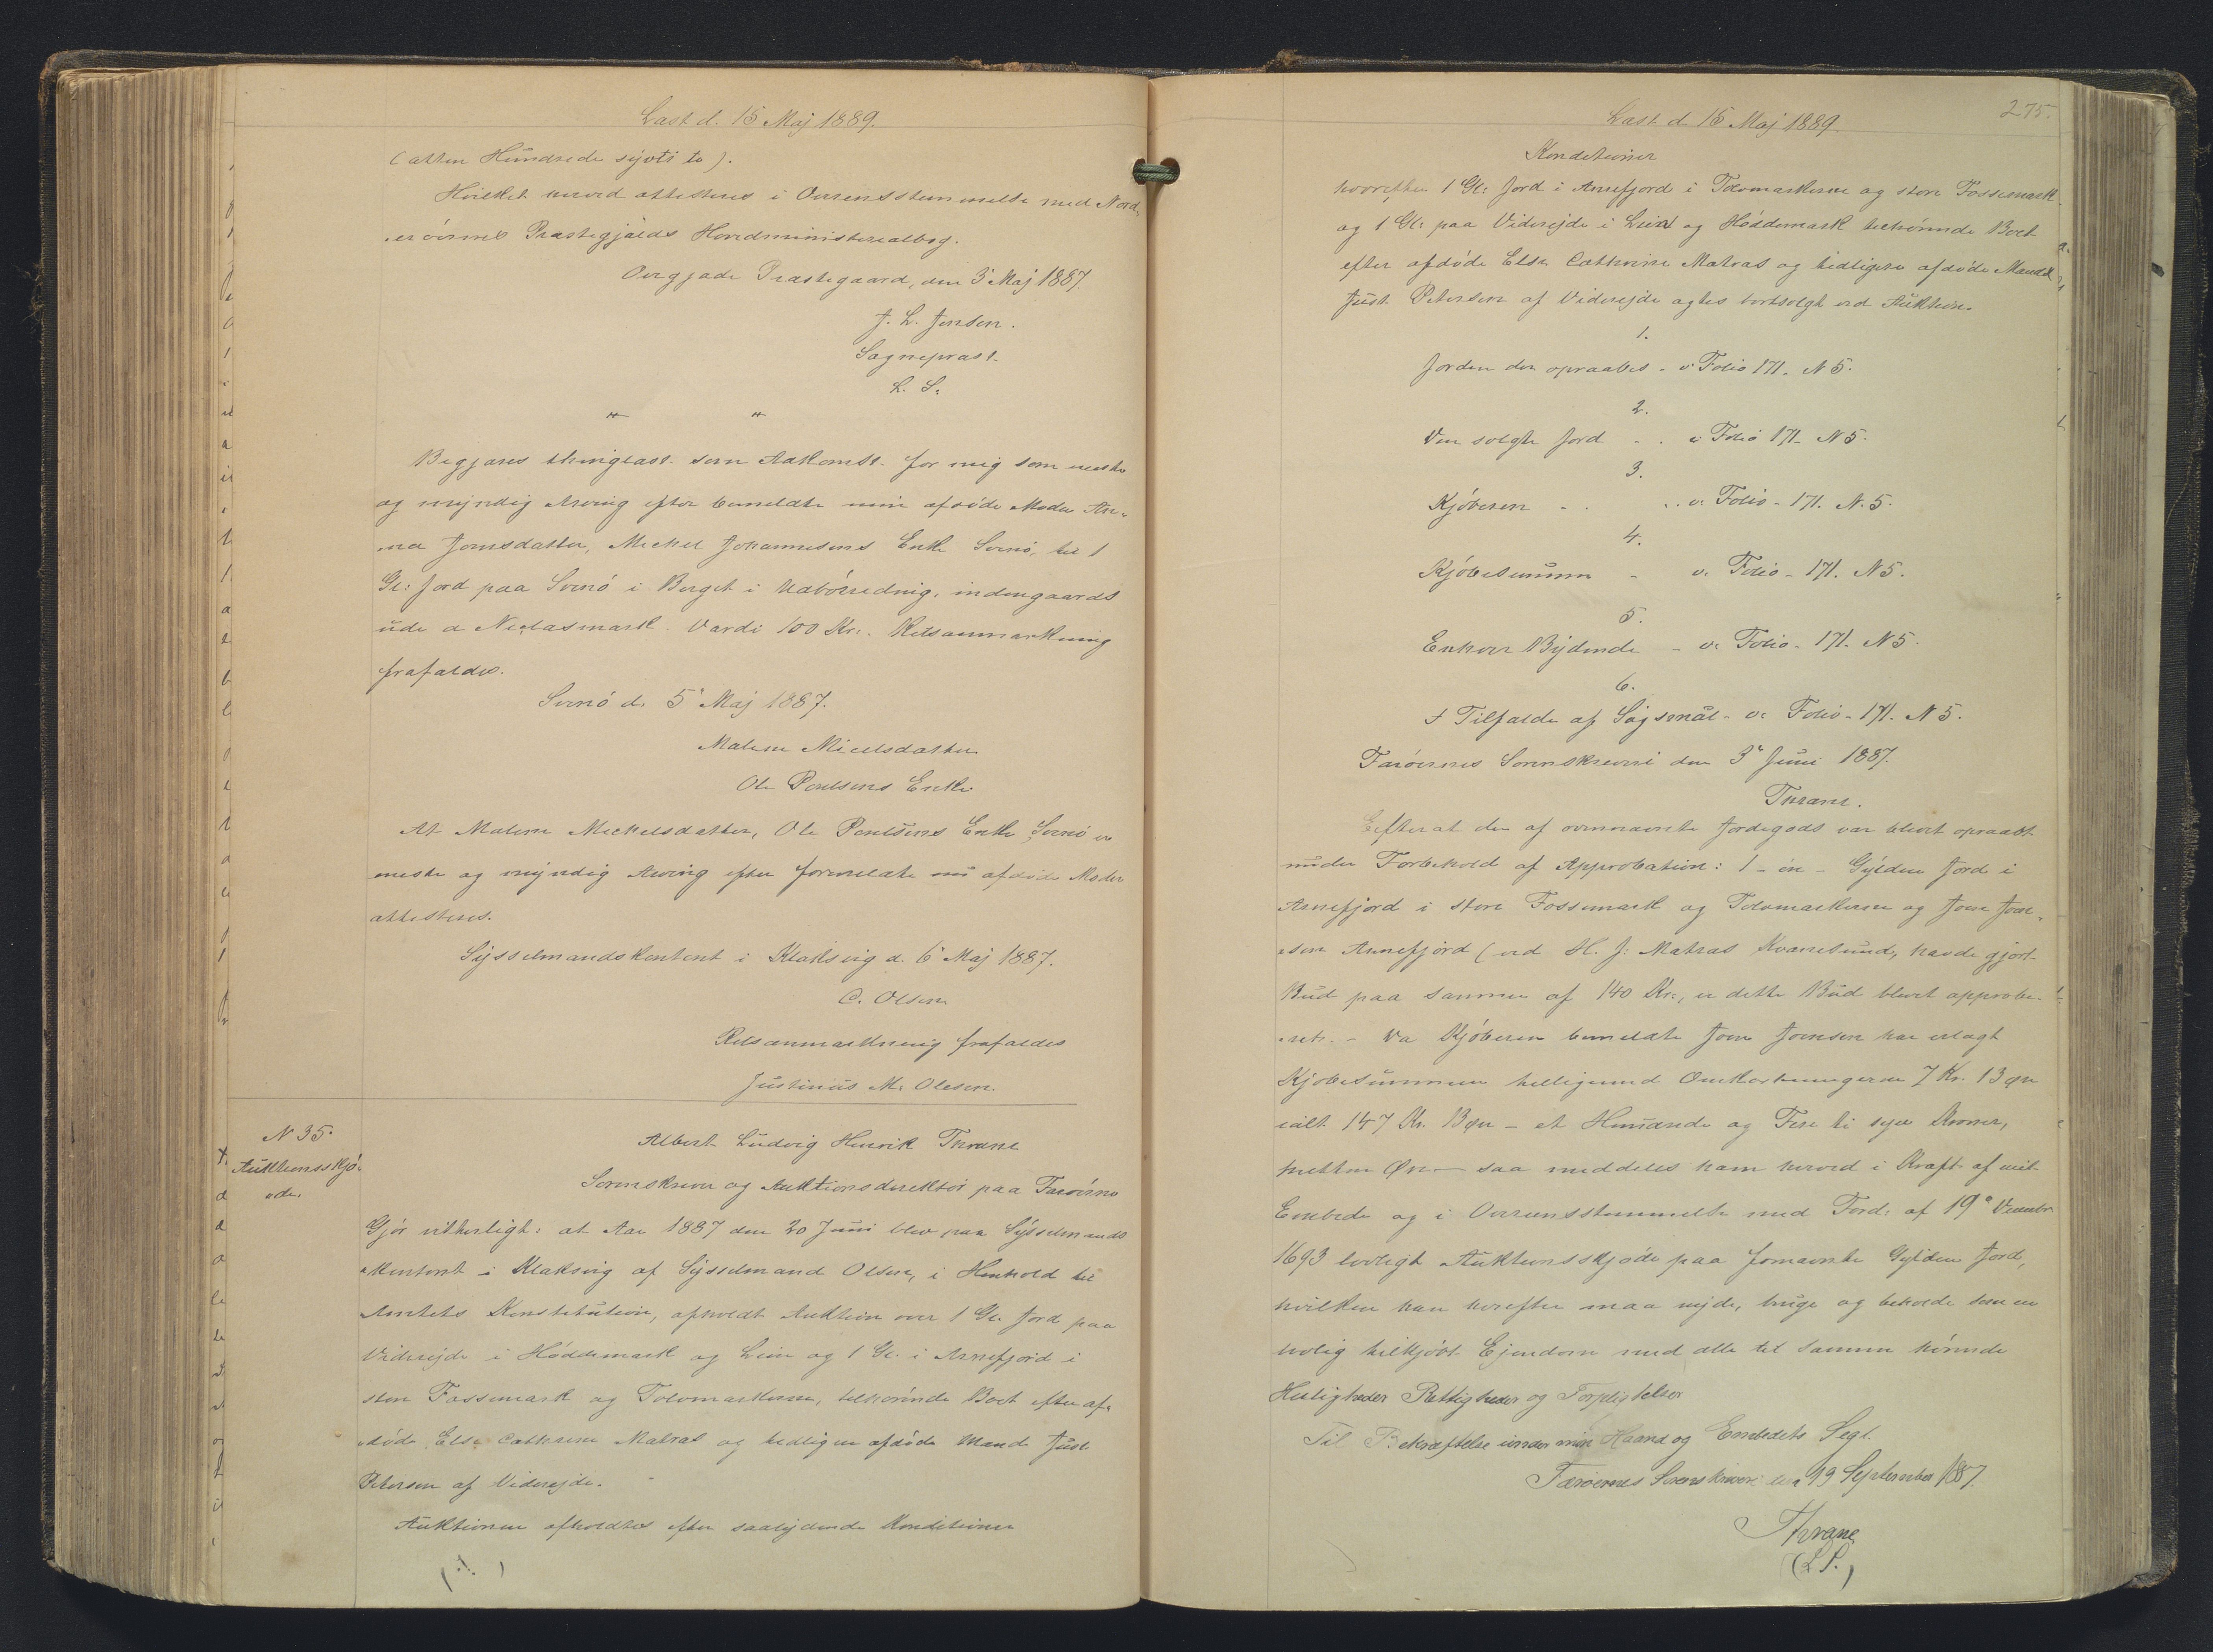 Læst d. 15 Maj 1889.
(atten Hundrede syvti to).
Hvilket herved attesteres i Overensstemmelse med Nord„
„erøernes Præstegjælds Hovedministerialbog.
Præstegaard, den 3' Maj 1887.
J. L. Jensen.
Sognepræst.
L. S.
" "
Begjæres thinglæst som Adkomst for mig som næste
og myndig Arving efter bemeldte min afdøde Moder An„
„na Joensdatter, Mickel Johannesens Enke Svinø, til 1
Gl: Jord paa Svinø i Berget i Udbørrednig, indengaards
ude a Niclasmark. Værdi 100 Kr. Retsanmærkning
frafaldes.
Svinø d. 5' Maj 1887.
Malene Mickelsdatter
Ole Poulsens Enke
At Malene Mickelsdatter, Ole Poulsens Enke, Svinø er
næste og myndig Arving efter formeldte nu afdøde Moder
attesteres.
Sysselmandskontoret i Klaksvig d. 6' Maj 1887.
C. Olsen
Retsanmærkning frafaldes
Justinus M. Olesen.
N 35.
Auktionsskjø„
„de.
Albert Ludvig Henrik Thrane
Sorenskriver og Auktionsdirektør paa Færøerne
Gjør vitterligt: at Aar 1887 den 20 Juni blev paa Sysselmands
„kontoret i Klaksvig af Sysselmand Olsen, i Henhold til
Amtets Konstitution, afholdt Auktion over 1 Gl. Jord paa
Viderejde i Høddemark og Leire og 1 Gl. i Arnefjord i
store Fossemark og Tolvmarkerne, tilhørende Boet efter af„
„døde Else Cathrine Matras og tidligere afdøde Mand Just
Petersen af Viderejde.
Auktionen afholdtes efter saalydende Konditioner
(·/.)
Læst d. 15 Maj 1889.
275.
Konditioner
hvorefter 1 Gl: Jord i Arnefjord i Tolvmarkerne og store Fossemark
og 1 Gl: paa Viderejde i Leire og Høddemark tilhørende Boet
efter afdøde Else Cathrine Matras og tidligere afdøde Mand
Just Petersen af Viderejde agtes bortsolgt ved Auktion.
1.
Jorden der opraabes - v. Folio 171. N 5.
2.
Den solgte Jord - . v. Folio 171. N 5.
3.
Kjøberen - . . . v. Folio - 171. N. 5.
4.
Kjøbesummen - v. Folio - 171. N 5.
5.
Enhver Bydende - v. Folio - 171. N 5.
6.
I Tilfælde af Søgsmål - v. Folio - 171. N 5.
Færøernes Sorenskriveri den 3' Juni 1887.
Thrane.
Efterat der af ovennævnte Jordegods var blevet opraabt
under Forbehold af Approbation: 1 - én - Gylden Jord i
Arnefjord i store Fossemark og Tolvmarkerne og Joen Joen„
„sen Arnefjord (ved H. J. Matras Kvanesund, havde gjort
Bud paa samme af 140 Kr., er dette Bud blevet approbe„
„ret. - Da Kjøberen bemeldte Joen Joensen har erlagt
Kjøbesummen tilligemed Omkostningerne 7 Kr. 13 Øre
ialt 147 Kr. 13 Øre - et Hundrede og Fire ti syv Kroner,
tretten Øre - saa meddeles ham herved i Kraft af mit
Embede og i Overensstemmelse med Ford: af 19' Decembr
1693 lovligt Auktionsskjøde paa fornævnte Gylden Jord,
hvilken han herefter maa nyde, bruge og beholde som en
lovlig tilkjøbt Ejendom med alle til samme hørende
Herligheder Rettigheder og Forpligtelser
Til Bekræftelse under min Haand og Embedets Segl.
Færøernes Sorenskriveri den 19 September 1887.
Thrane
(L.S.)